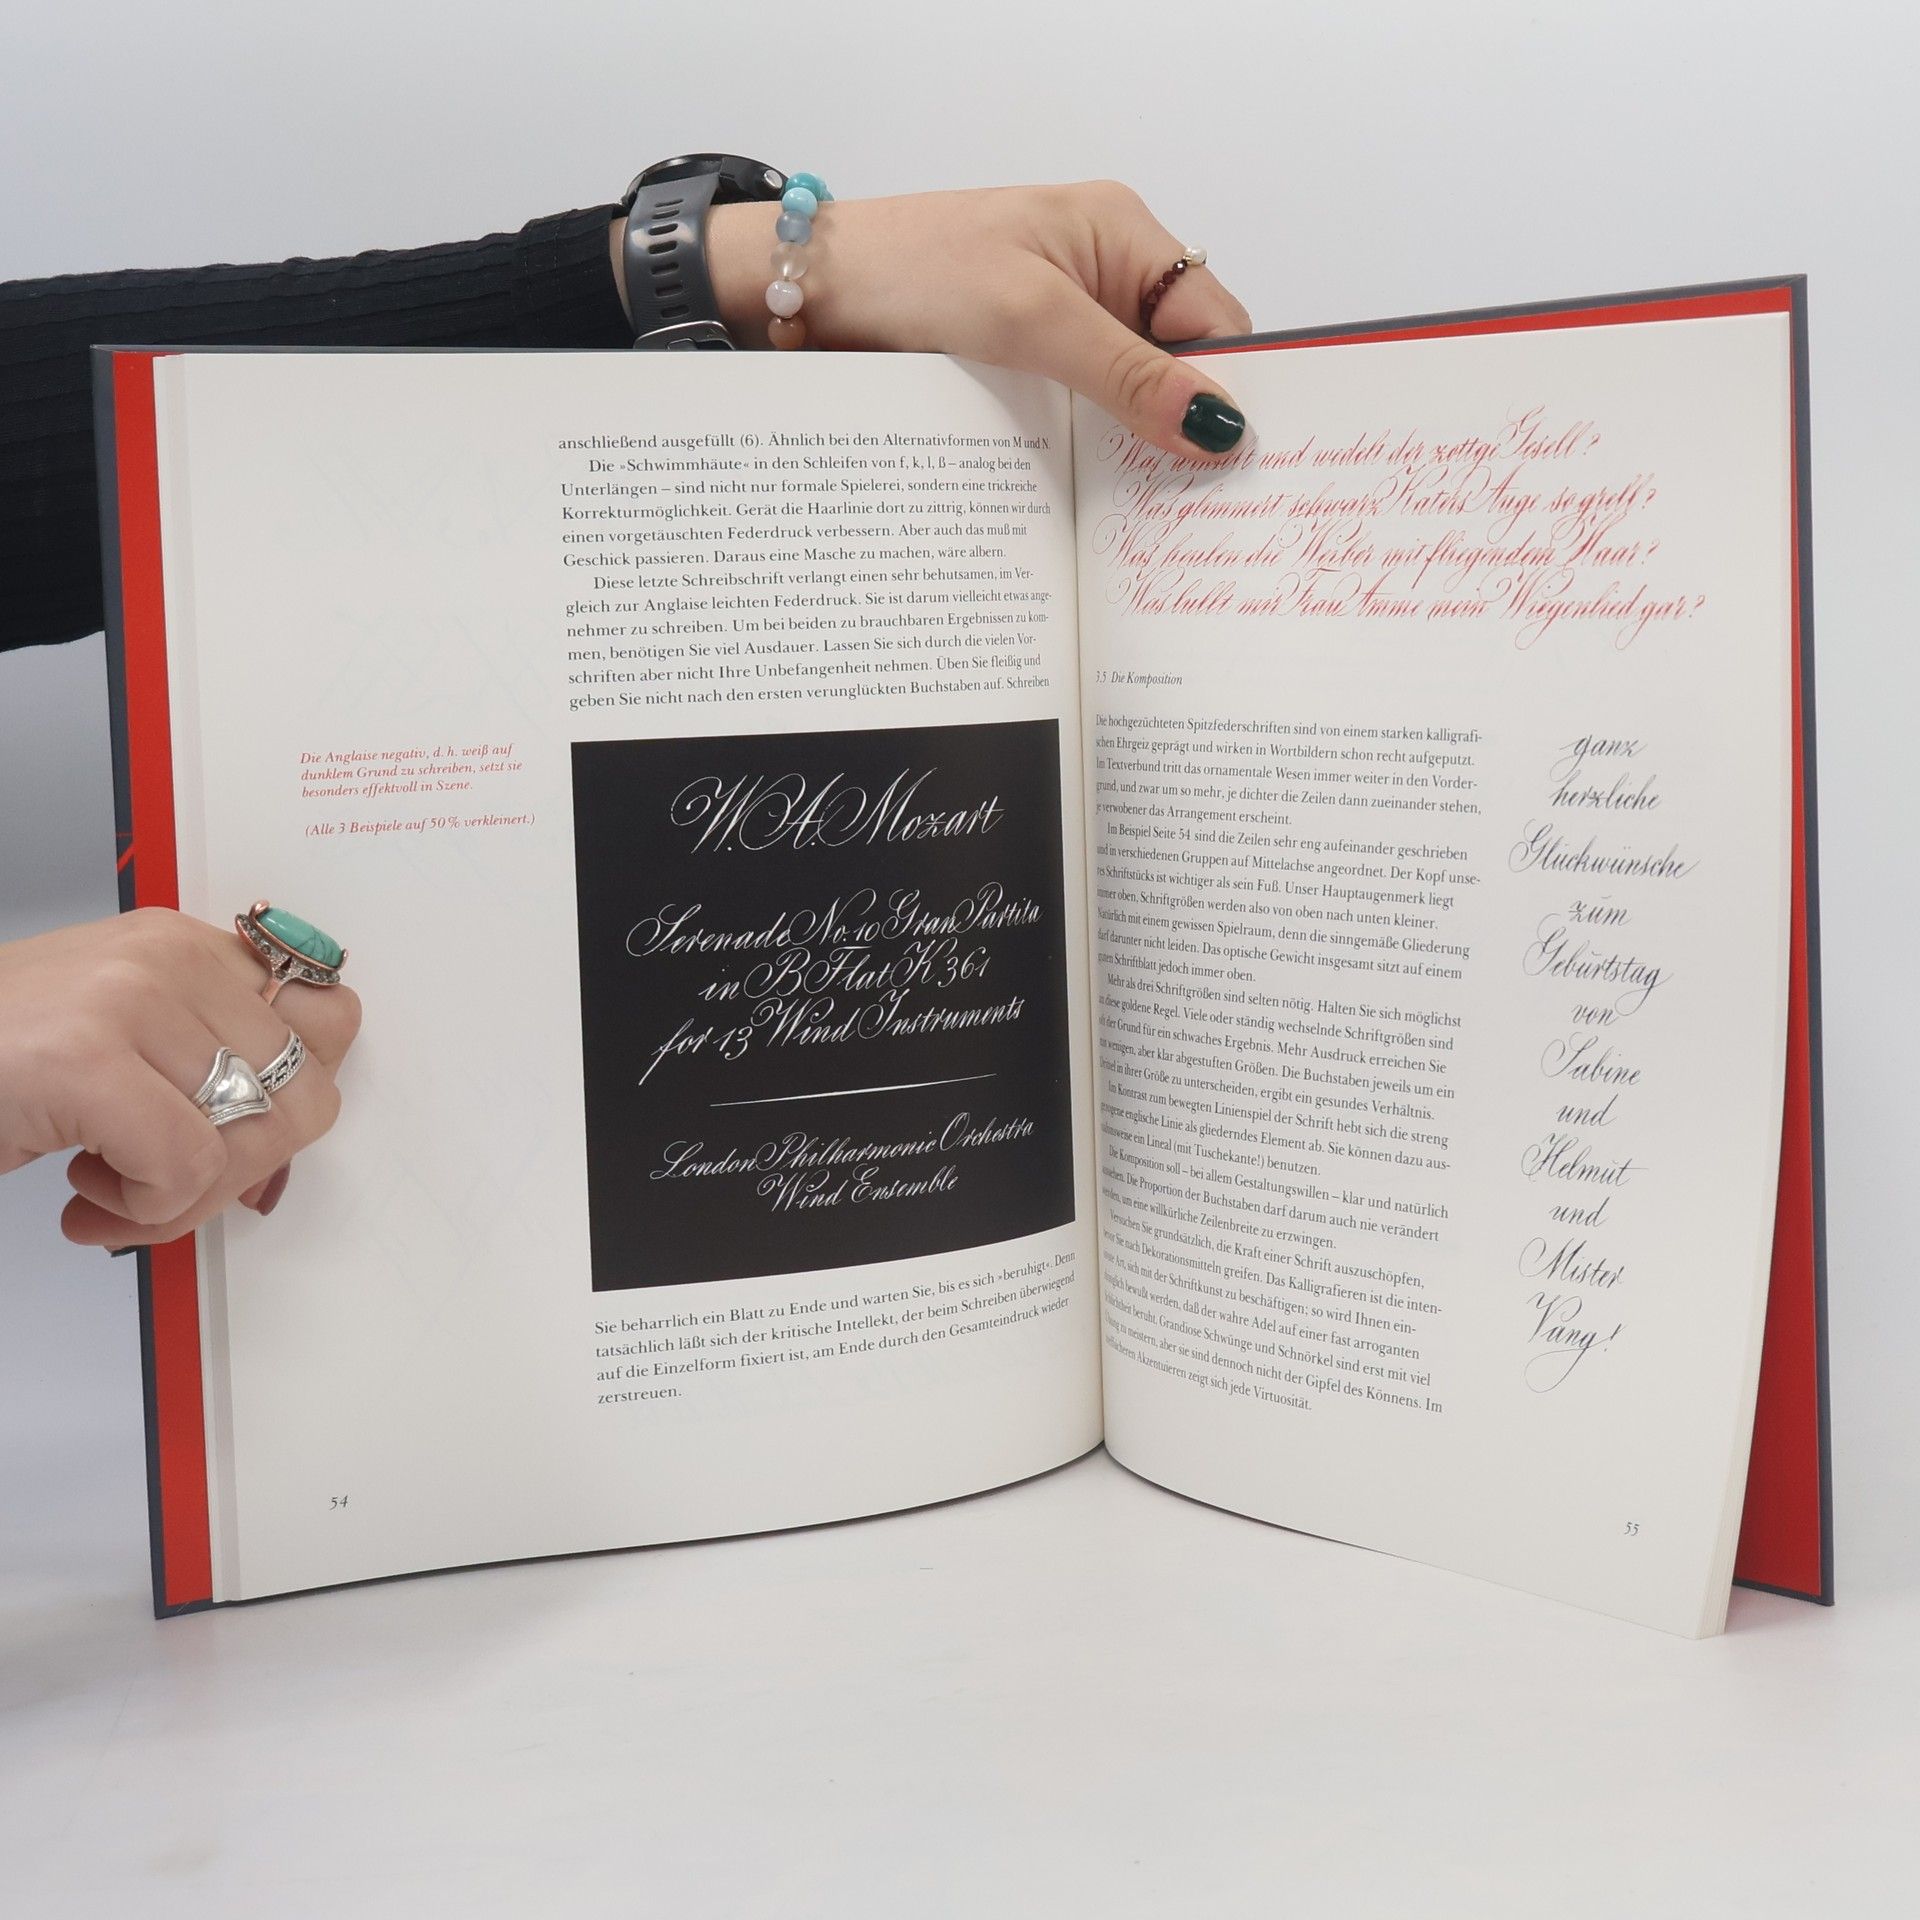 anschließend ausgefüllt (6). Ähnlich bei den Alternativformen von M und N.
Die »Schwimmhäute« in den Schleifen von f, k, l, ß – analog bei den
Unterlängen – sind nicht nur formale Spielerei, sondern eine trickreiche
Korrekturmöglichkeit. Gerät die Haarlinie dort zu zittrig, können wir durch
einen vorgetäuschten Federdruck verbessern. Aber auch das muß mit
Geschick passieren. Daraus eine Masche zu machen, wäre albern.
Diese letzte Schreibschrift verlangt einen sehr behutsamen, im Ver-
gleich zur Anglaise leichten Federdruck. Sie ist darum vielleicht etwas ange-
nehmer zu schreiben. Um bei beiden zu brauchbaren Ergebnissen zu kom-
men, benötigen Sie viel Ausdauer. Lassen Sie sich durch die vielen Vor-
schriften aber nicht Ihre Unbefangenheit nehmen. Üben Sie fleißig und
geben Sie nicht nach den ersten verunglückten Buchstaben auf. Schreiben
Die Anglaise negativ, d. h. weiß auf
dunklem Grund zu schreiben, setzt sie
besonders effektvoll in Szene.
(Alle 3 Beispiele auf 50% verkleinert.)
W. A. Mozart
Serenade No. 10 Gran Partita
in B Flat K 361
for 13 Wind Instruments
London Philharmonic Orchestra
Wind Ensemble
Sie beharrlich ein Blatt zu Ende und warten Sie, bis es sich »beruhigt«. Denn
tatsächlich läßt sich der kritische Intellekt, der beim Schreiben überwiegend
auf die Einzelform fixiert ist, am Ende durch den Gesamteindruck wieder
zerstreuen.
54
Was winselt und wedelt der zottge Gesell?
Was glimmert schwarz Katers Auge so grell?
Was heulen die Weiber mit fliegendem Haar?
Was lullt mir Frau Amme mein Wiegenlied gar?
3.5 Die Komposition
Die hochgezüchteten Spitzfederschriften sind von einem starken kalligrafi-
schen Ehrgeiz geprägt und wirken in Wortbildern schon recht aufgeputzt.
Im Textverbund tritt das ornamentale Wesen immer weiter in den Vorder-
grund, und zwar um so mehr, je dichter die Zeilen dann zueinander stehen,
je verwobener das Arrangement erscheint.
Im Beispiel Seite 54 sind die Zeilen sehr eng aufeinander geschrieben
und in verschiedenen Gruppen auf Mittelachse angeordnet. Der Kopf unse-
res Schriftstücks ist wichtiger als sein Fuß. Unser Hauptaugenmerk liegt
immer oben, Schriftgrößen werden also von oben nach unten kleiner.
Natürlich mit einem gewissen Spielraum, denn die sinngemäße Gliederung
darf darunter nicht leiden. Das optische Gewicht insgesamt sitzt auf einem
guten Schriftblatt jedoch immer oben.
Mehr als drei Schriftgrößen sind selten nötig. Halten Sie sich möglichst
an diese goldene Regel. Viele oder ständig wechselnde Schriftgrößen sind
oft der Grund für ein schwaches Ergebnis. Mehr Ausdruck erreichen Sie
mit wenigen, aber klar abgestuften Größen. Die Buchstaben jeweils um ein
Drittel in ihrer Größe zu unterscheiden, ergibt ein gesundes Verhältnis.
Im Kontrast zum bewegten Linienspiel der Schrift hebt sich die streng
gezogene englische Linie als gliederndes Element ab. Sie können dazu aus-
nahmsweise ein Lineal (mit Tuschekante!) benutzen.
Die Komposition soll – bei allem Gestaltungswillen – klar und natürlich
aussehen. Die Proportion der Buchstaben darf darum auch nie verändert
werden, um eine willkürliche Zeilenbreite zu erzwingen.
Versuchen Sie grundsätzlich, die Kraft einer Schrift auszuschöpfen,
bevor Sie nach Dekorationsmitteln greifen. Das Kalligrafieren ist die inten-
Art, sich mit der Schriftkunst zu beschäftigen; so wird Ihnen ein-
bewußt werden, daß der wahre Adel auf einer fast arroganten
beruht. Grandiose Schwünge und Schnörkel sind erst mit viel
Übung zu meistern, aber sie sind dennoch nicht der Gipfel des Könnens. Im
Akzentuieren zeigt sich jede Virtuosität.
ganz
herzliche
Glückwünsche
zum
Geburtstag
von
Sabine
und
Helmut
und
Mister
Vang!
55